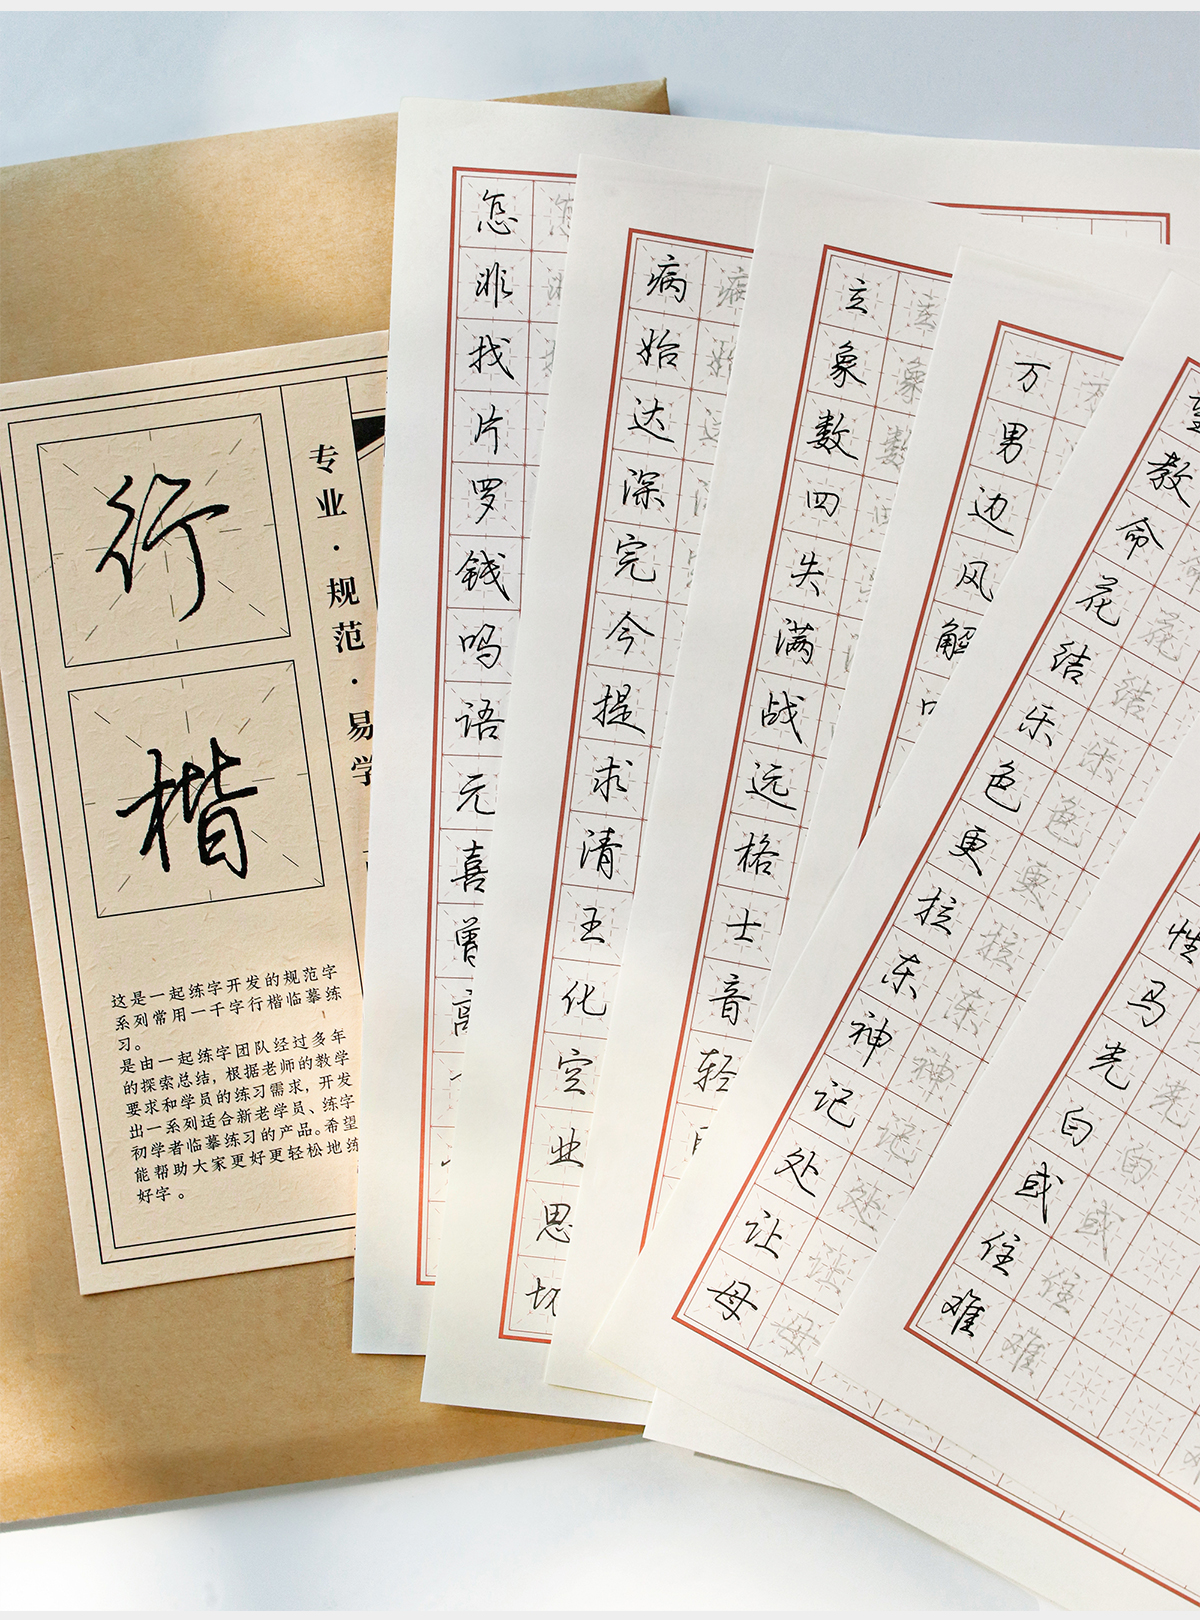 行
楷
专业·规范·易学
这是一起练字开发的规范字
系列常用一千字行楷临摹练
习。
是由一起练字团队经过多年
的探索总结，根据老师的教学
要求和学员的练习需求，开发
出一系列适合新老学员、练字
初学者临摹练习的产品。希望
能帮助大家更好更轻松地练
好字。
怎
非
找
片
罗
钱
吗
语
元
喜
曾
病
始
达
深
完
今
提
求
清
王
化
空
业
思
切
立
象
数
四
失
满
战
远
格
士
音
轻
万
男
边
风
解
教
命
花
结
乐
色
更
拉
东
神
记
处
让
母
性
马
先
白
或
住
难